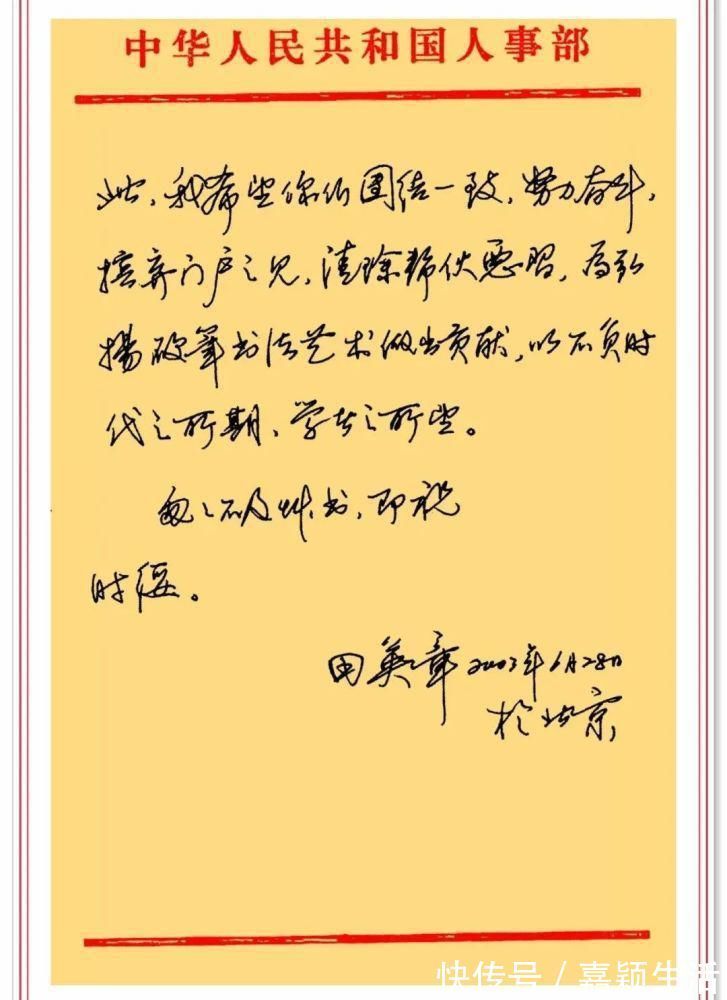 中华人民共和国人事部
此，我希望你们团结一致，努力奋斗，
摈弃门户之见，清除帮伙恶习，为弘
揚硬筆书法艺术做出贡献，以不负时
代之所期、学者之所望。
匆匆不及帋书，即祝
时绥。
田英章2003年6月28日
於北京
快传号/嘉颖生活